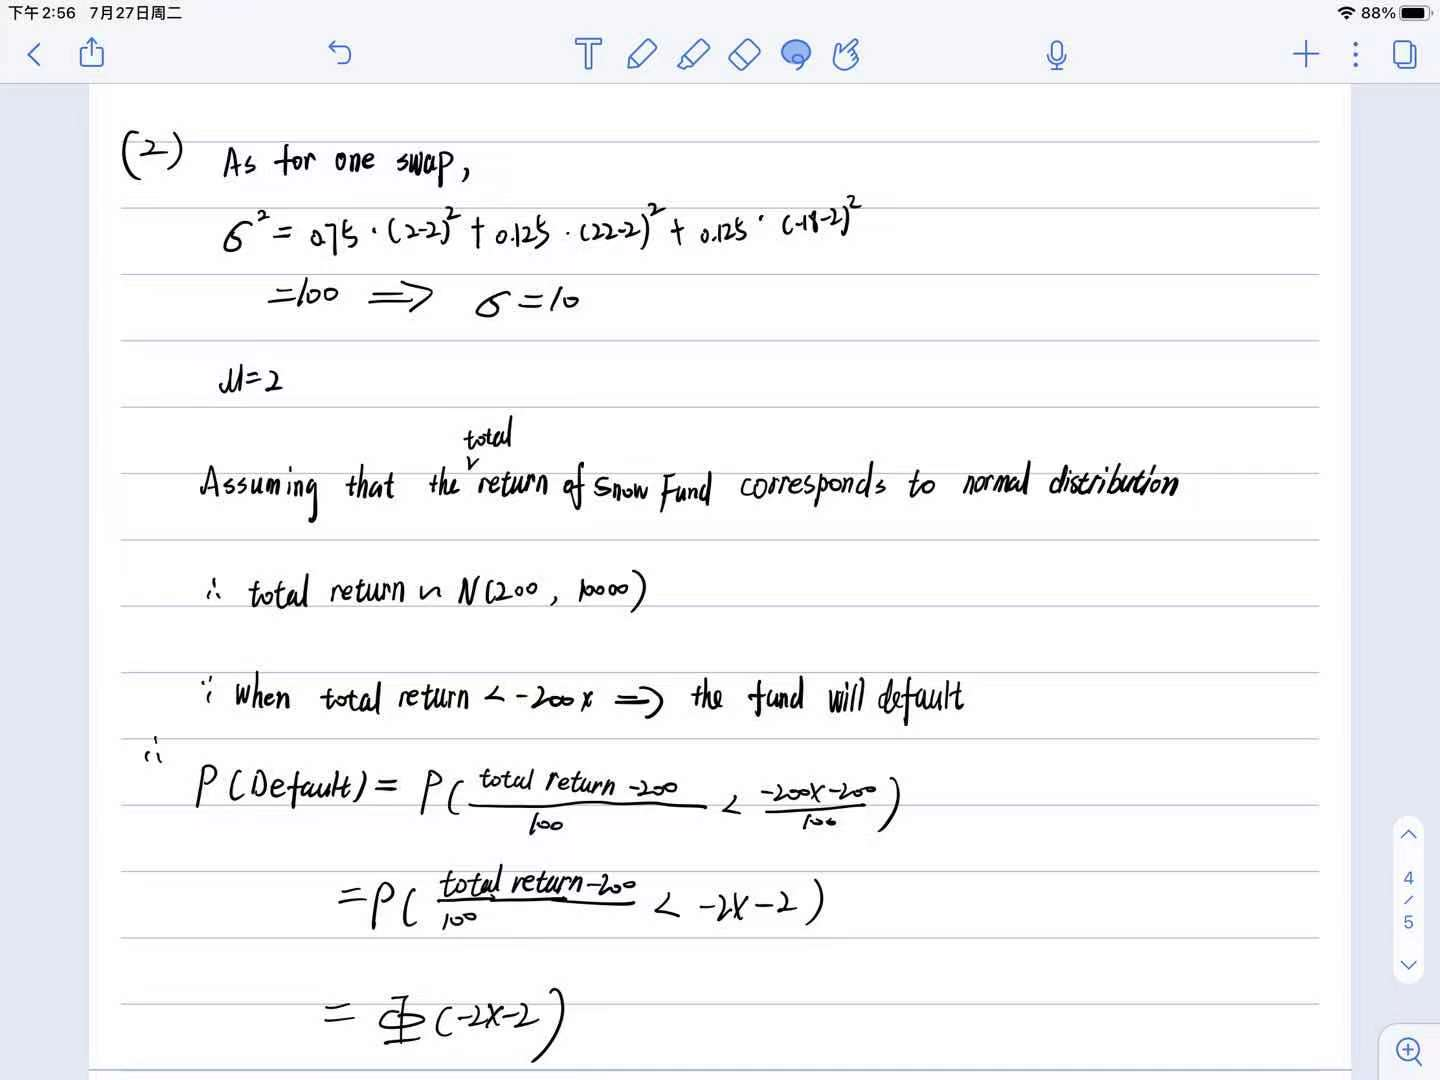 下午2:56 7月27日周二
88%
(2) As for one swap,
σ² = 0.75 · (2-2)² + 0.125 · (22-2)² + 0.125 · (-18-2)²
=100 ⇒ σ=10
μ=2
total
Assuming that the ∨ return of Snow Fund corresponds to normal distribution
∴ total return ~ N(200, 10000)
∵ when total return < -200x ⇒ the fund will default
∴
P(Default) = P( (total return -200)/100 < (-200x-200)/100 )
= P( (total return-200)/100 < -2x-2 )
= Φ(-2x-2)
4
/
5